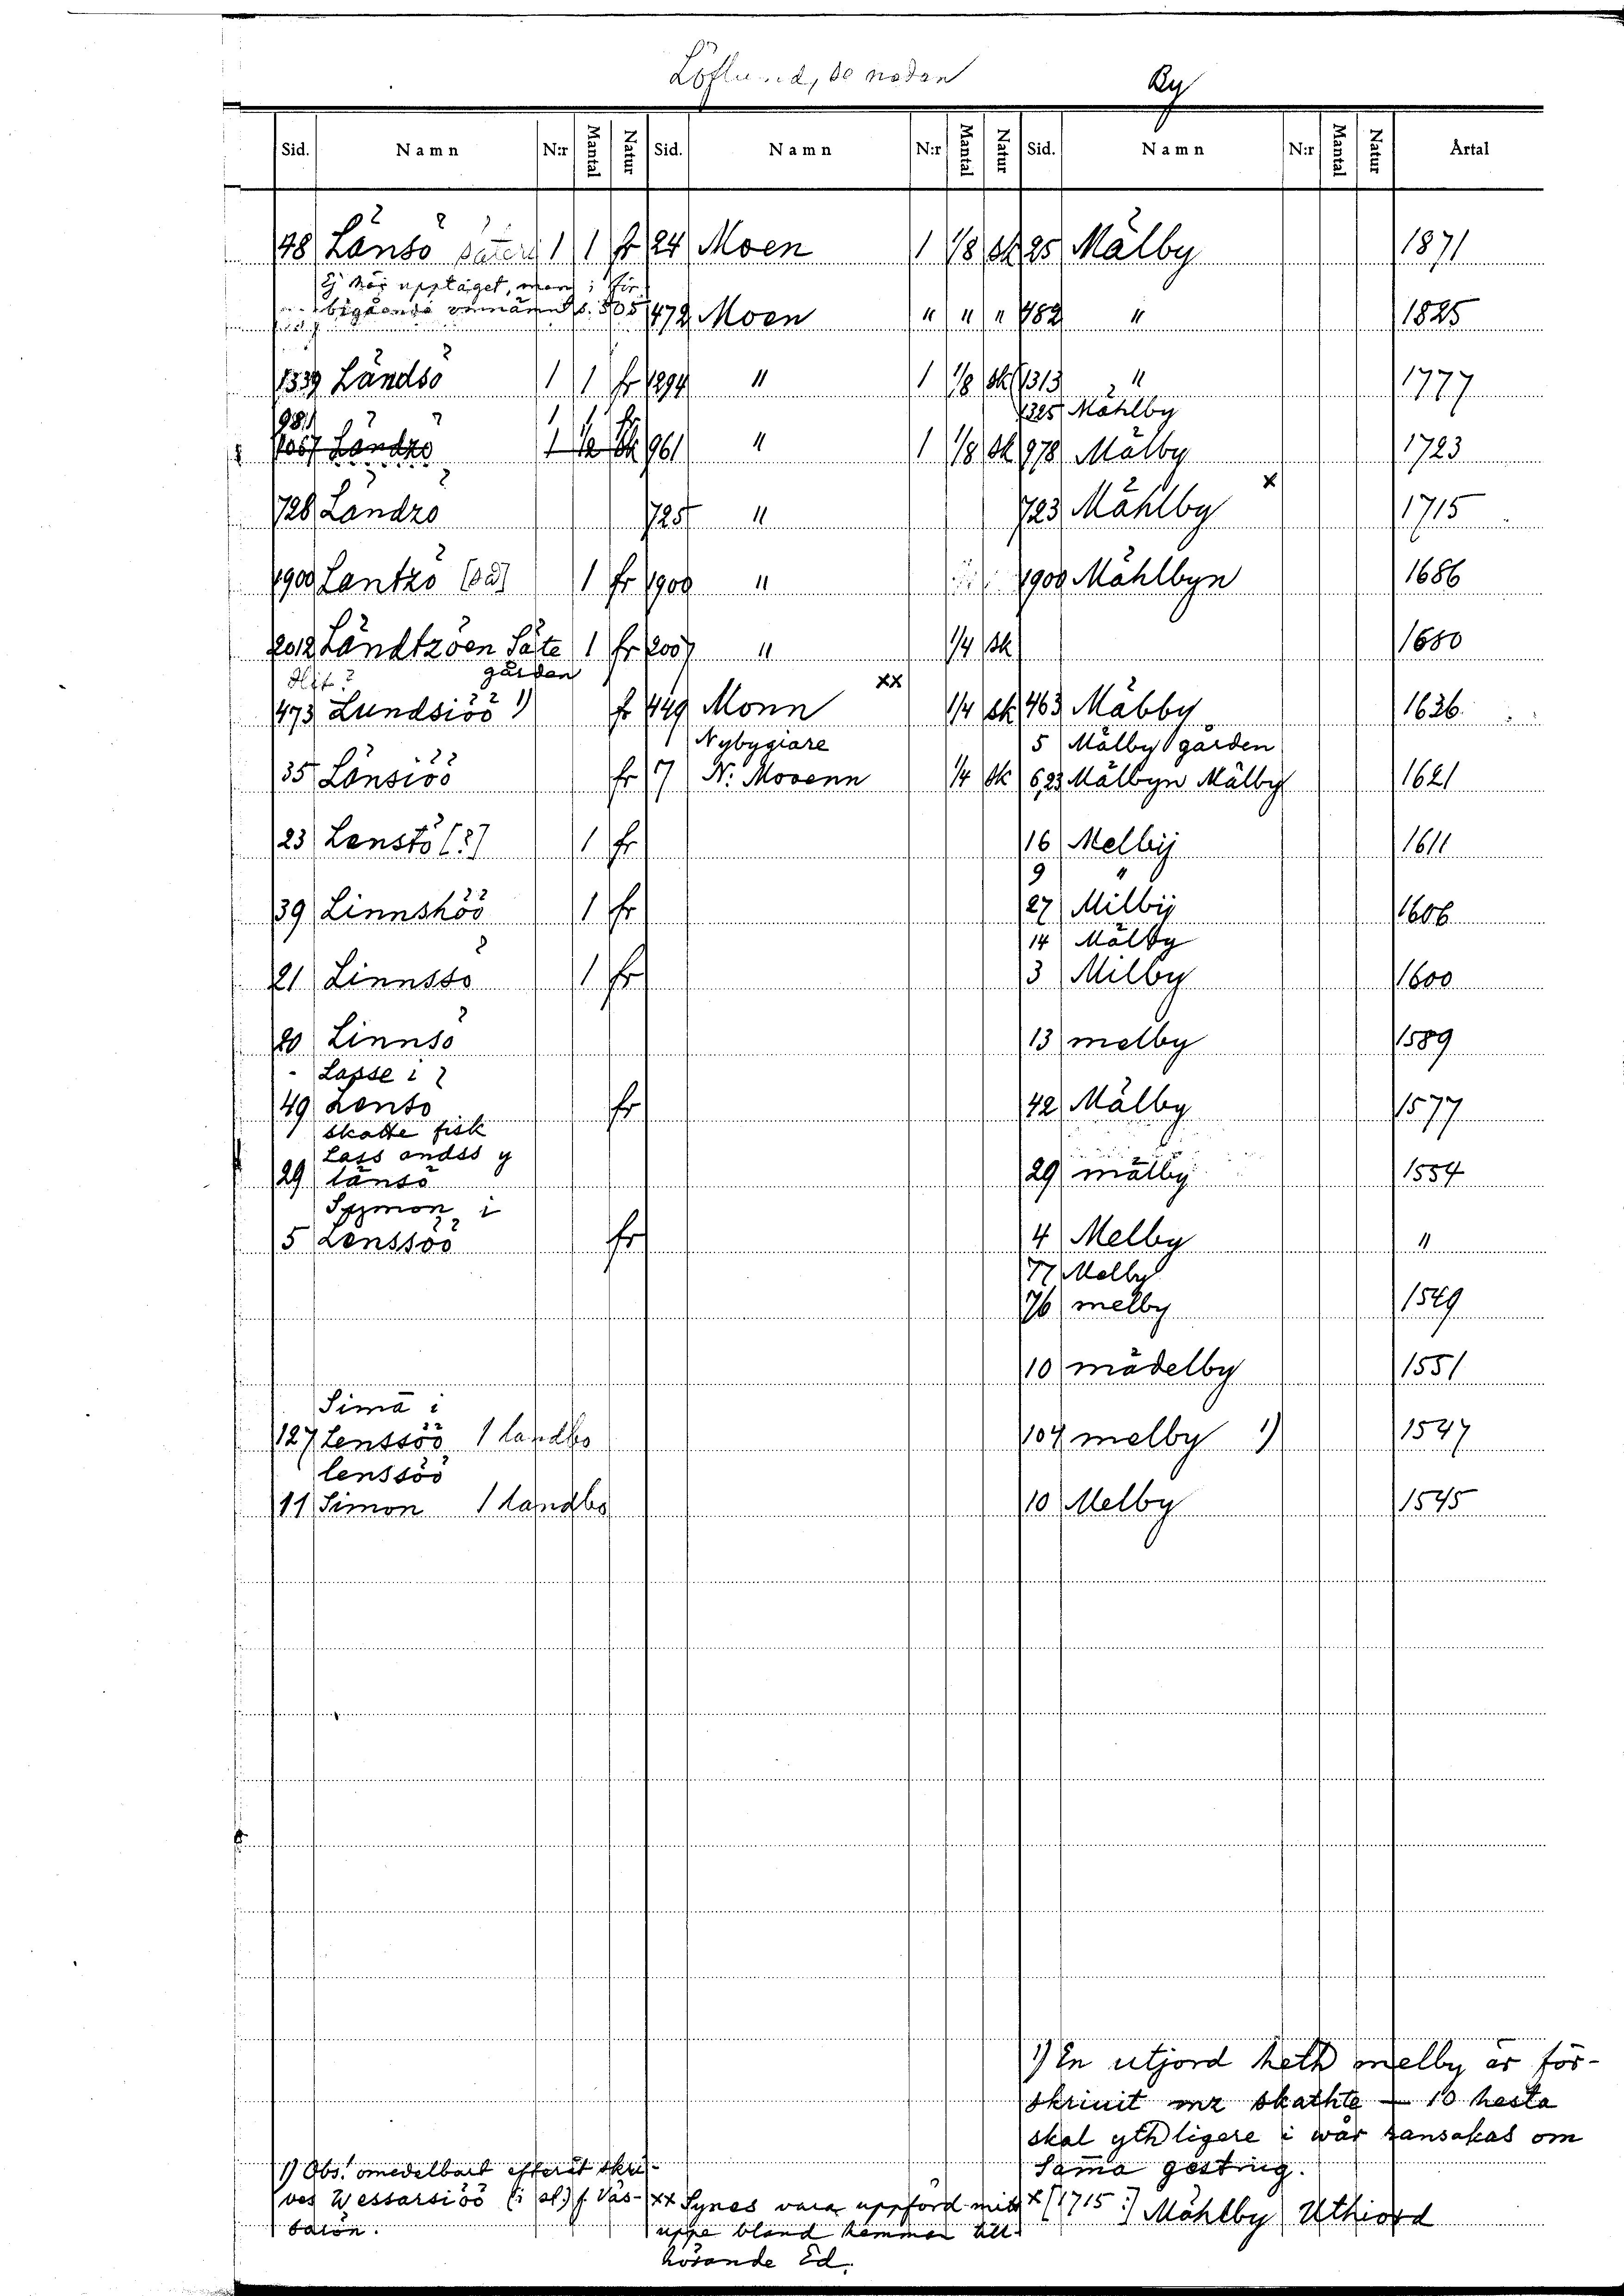 Löflund, se nedan By
Sid. Namn N:r Mantal Natur Sid. Namn N:r Mantal Natur Sid. Namn N:r Mantal Natur Årtal
48 Länsö säteri 1 1 fr 24 Moen 1 1/8 sk 25 Mälby 1871
Ej här upptaget, men i för-
bigående omnämnd s. 505 472 Moen " " " 482 " 1825
1339 Ländsö 1 1 fr 1294 " 1 1/8 sk 1313 " 1777
981 1 1 fr 1325 Mählby
1067 Landzo 1 1/2 Sk 961 " 1 1/8 sk 978 Mälby 1723
728 Landzo 725 " 723 Mählby x 1715
1900 Lantzö [så] 1 fr 1900 " 1900 Mählbyn 1686
2012 Ländtzöen Säte 1 fr 2007 " 1/4 sk 1680
gården
473 Lundsiöö 1) fr 449 Monn xx 1/4 sk 463 Mäbby 1636
Nybygiare 5 Mälby gården
35 Länsiöö fr 7 N. Movenn 1/4 sk 6,23 Mälbyn Mälby 1621
23 Lenstö [?] 1 fr 16 Melbÿ 1611
9 "
39 Linnshöö 1 fr 27 Milbÿ 1606
14 Mälby
21 Linnssö 1 fr 3 Milby 1600
20 Linnsö 13 melby 1589
Lasse i
49 Lensö fr 42 Mälby 1577
skatte fisk
Lass andss y
29 länsö 29 mälby 1554
Symon i
5 Lenssöö fr 4 Melby "
77 Melby
76 melby 1549
10 mädelby 1551
Simā i
127 Lenssöö 1 landbo 104 melby 1) 1547
lenssöö
11 Simon 1 landbo 10 Melby 1545
1) En utjord heth melby är för-
skriuit mz skathte — 10 hesta
skal ythligere i wår ransakas om
Sam̄a gestnig.
1) Obs! omedelbart efteråt skri-
ves Wessarsiöö (i sl.) f. Väs-
barön.
xx Synes vara uppförd mitt
uppe bland hemman till-
hörande Ed.
x [1715:] Mählby Uthiord